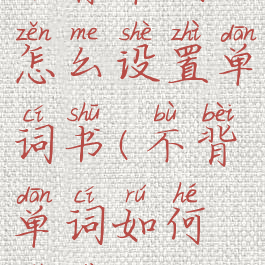 zěn me shè zhì dān
怎么设置单
cí shū bù bèi
词书(不背
dān cí rú hé
单词如何